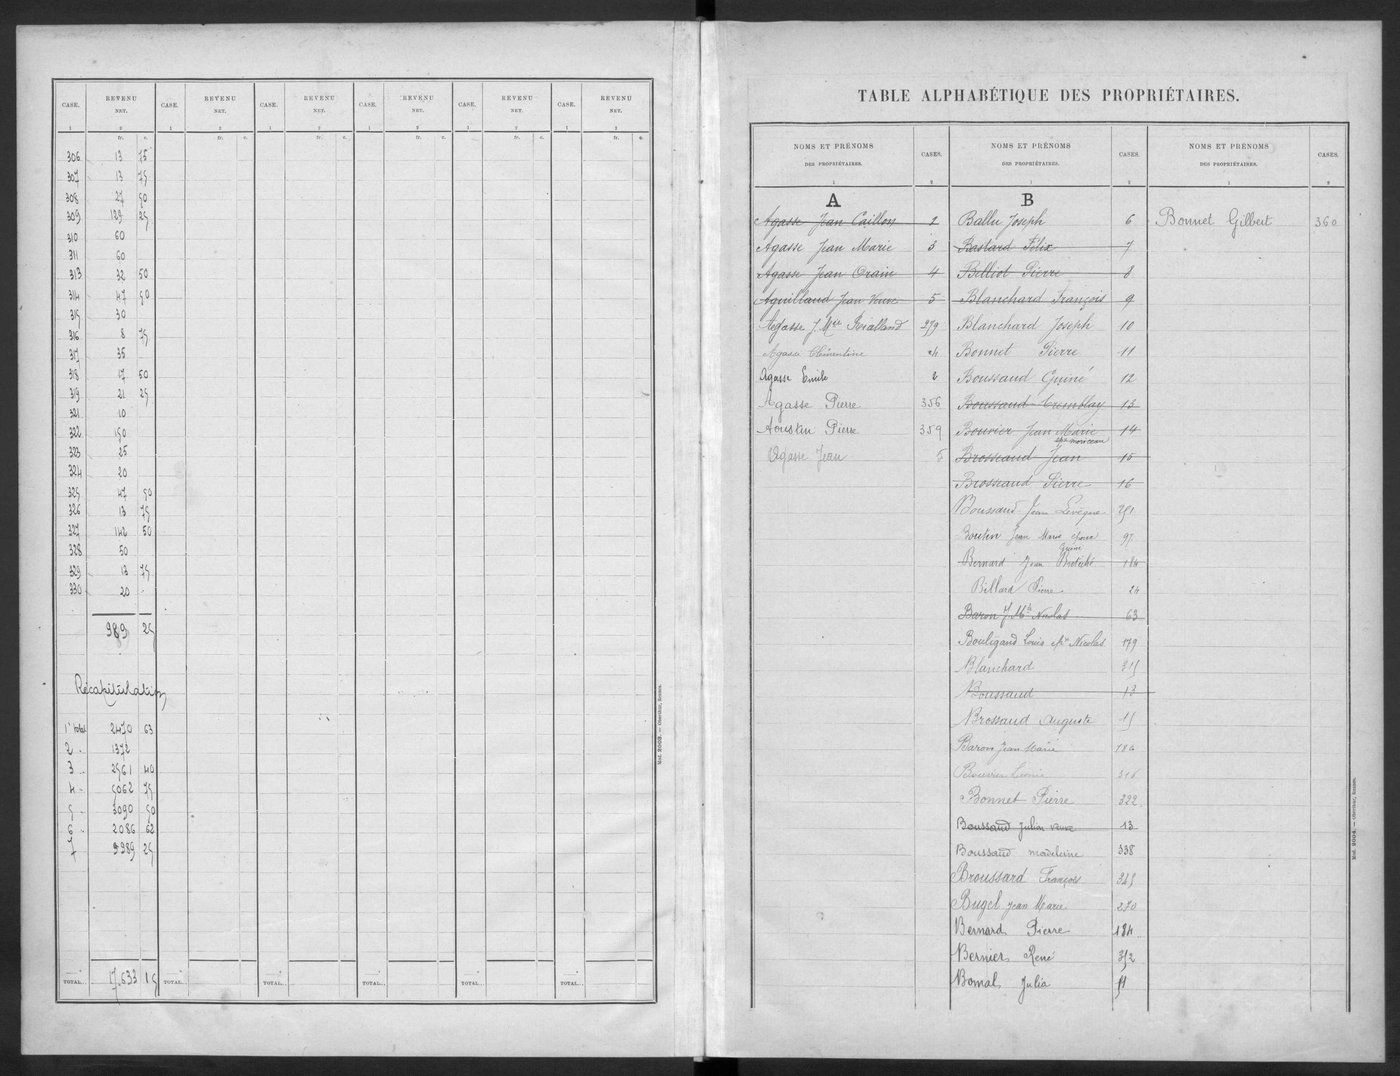 CASE. REVENU NET. CASE. REVENU NET. CASE. REVENU NET. CASE. REVENU NET. CASE. REVENU NET. CASE. REVENU NET.
1 2 1 2 1 2 1 2 1 2 1 2
fr. c. fr. c. fr. c. fr. c. fr. c. fr. c.
306 13 75
307 13 75
308 27 50
309 129 25
310 60
311 60
313 32 50
314 47 50
315 30
316 8 75
317 35
318 17 50
319 21 25
321 10
322 150
323 25
324 20
325 47 50
326 13 75
327 142 50
328 50
329 13 75
330 20
989 25
Récapitulation
1er total 2470 63
2 1372
3 2561 40
4 5062 75
5 3090 50
6 2086 62
7 989 25
TOTAL... 17,633 15 TOTAL... TOTAL... TOTAL... TOTAL... TOTAL...
Mod. 2003. — Oberthur, Rennes.
TABLE ALPHABÉTIQUE DES PROPRIÉTAIRES.
NOMS ET PRÉNOMS DES PROPRIÉTAIRES. CASES. NOMS ET PRÉNOMS DES PROPRIÉTAIRES. CASES. NOMS ET PRÉNOMS DES PROPRIÉTAIRES. CASES.
1 2 1 2 1 2
A
Agasse Jean Caillon 2
Agasse Jean Marie 3
Agasse Jean Orain 4
Aguillaud Jean Veuve 5
Agasse J. Mie Rialland 279
Agasse Clémentine 4
Agasse Emile 2
Agasse Pierre 356
Aoustin Pierre 359
Agasse Jean 5
B
Ballu Joseph 6
Bastard Félix 7
Belliot Pierre 8
Blanchard François 9
Blanchard Joseph 10
Bonnet Pierre 11
Boussaud Guiné 12
Boussaud Tremblay 13
Bouvier Jean Marie 14
Brosseaud Jean 15
Brosseaud Pierre 16
Boussaud Jean Levêque 251
Boutin Jean Marie époux Guiné 97
Bernard Jean 184
Billard Pierre 24
Baron J. Nicolas 63
Bouligand Louis Nicolas 179
Blanchard 315
Boussaud 13
Brossaud Auguste 15
Baron Jean Marie 186
Bouvier 316
Bonnet Pierre 322
Boussaud Julien veuve 13
Boussaud madeleine 338
Broussard François 345
Bugel Jean Marie 270
Bernard Pierre 184
Bernier René 352
Bomal Julia 51
Bonnet Gilbert 360
Mod. 2004. — Oberthur, Rennes.